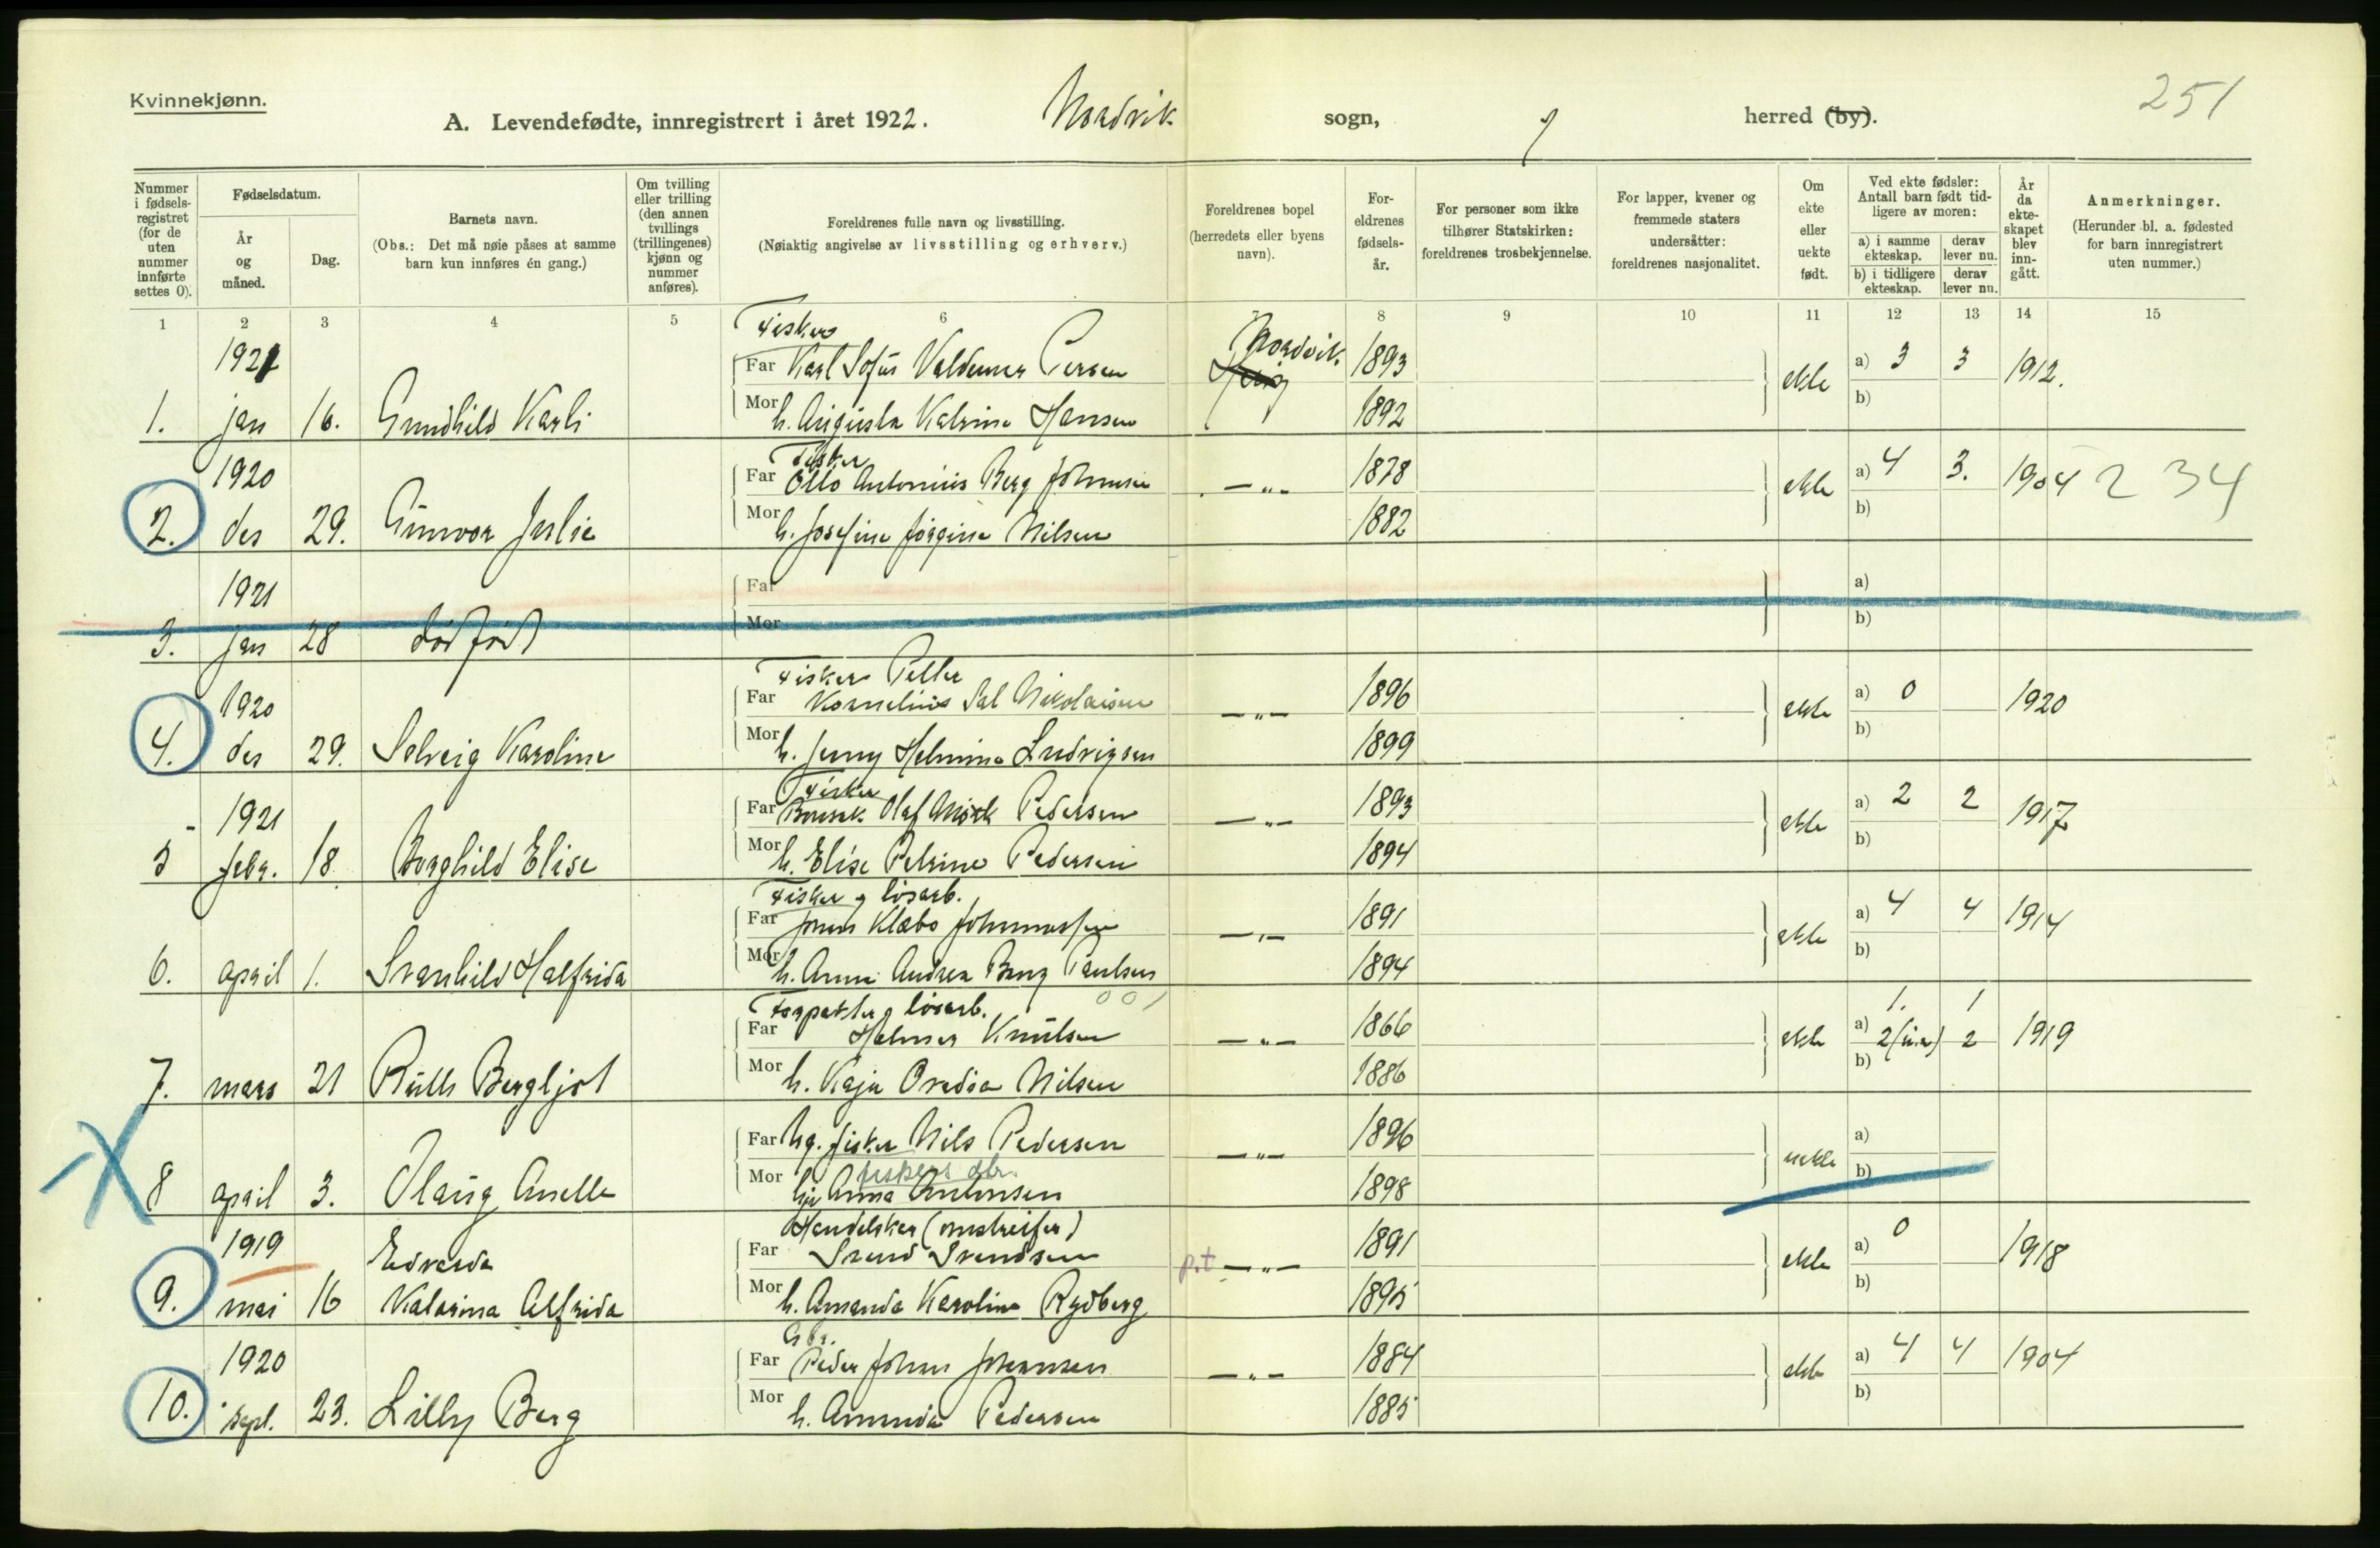 Kvinnekjønn.
251
A. Levendefødte, innregistrert i året 1922. Nordvik sogn, herred (by).
Nummer i fødsels-registret (for de uten nummer innførte settes 0).
Fødselsdatum.
År og måned.
Dag.
Barnets navn.
(Obs.: Det må nøie påses at samme barn kun innføres én gang.)
Om tvilling eller trilling (den annen tvillings (trillingenes) kjønn og nummer anføres).
Foreldrenes fulle navn og livsstilling.
(Nøiaktig angivelse av livsstilling og erhverv.)
Foreldrenes bopel (herredets eller byens navn).
For-eldrenes fødsels-år.
For personer som ikke tilhører Statskirken: foreldrenes trosbekjennelse.
For lapper, kvener og fremmede staters undersåtter: foreldrenes nasjonalitet.
Om ekte eller uekte født.
Ved ekte fødsler: Antall barn født tid-ligere av moren:
a) i samme ekteskap. derav lever nu.
b) i tidligere ekteskap. derav lever nu.
År da ekte-skapet blev inn-gått.
Anmerkninger.
(Herunder bl. a. fødested for barn innregistrert uten nummer.)
1 2 3 4 5 6 7 8 9 10 11 12 13 14 15
1921 Fisker Nordvik
Far Karl Sofus Valdemar Persen 1893 a) 3 3 1912.
1. jan 16. Gundhild Karli Mor h. Augusta Katrine Hansen 1892 ekte b)
1920 Fisker
Far Otto Antonius Berg Johnsen —"— 1878 a) 4 3. 1904 2 34
2. des 29. Gunvor Julie Mor h. Josefine Jörgine Nilsen 1882 ekte b)
1921 Far a)
3. jan 28 dödfödt Mor b)
1920 Fisker Petter
Far Kornelius Sal Nikolaisen —"— 1896 a) 0 1920
4. des 29. Solveig Karoline Mor h. Jenny Helmine Ludvigsen 1899 ekte b)
1921 Fisker
Far Olaf Mörk Pedersen —"— 1893 a) 2 2 1917
5 febr. 18. Borghild Elise Mor h. Elise Petrine Pedersen 1894 ekte b)
Fisker og lösarb.
Far Jonas Klæbo Johannessen —"— 1891 a) 4 4 1914
6. april 1. Svanhild Halfrida Mor h. Anna Andrea Berg Paulsen 1894 ekte b)
Forpakter og lösarb. 001
Far Helmer Knutsen —"— 1866 a) 1. 1 1919
7. mars 21 Ruth Bergljot Mor h. Kaja Ovedia Nilsen 1886 ekte b) 2 2
Far Ug. fisker Nils Pedersen —"— 1896 a)
fiskers dtr.
8 april 3. Olaug Anella Mor Anna Antonsen 1898 uekte b)
1919 Edvarda Handelskar (omstreifer)
Far Svend Svendsen p.t —"— 1891 a) 0 1918
9. mai 16 Katarina Alfrida Mor h. Amanda Karoline Rydberg 1895 ekte b)
1920 Gbr.
Far Peder Johan Johannesen —"— 1884 a) 4 4 1904
10. sept. 23. Lilly Berg Mor h. Amanda Pedersen 1885 ekte b)